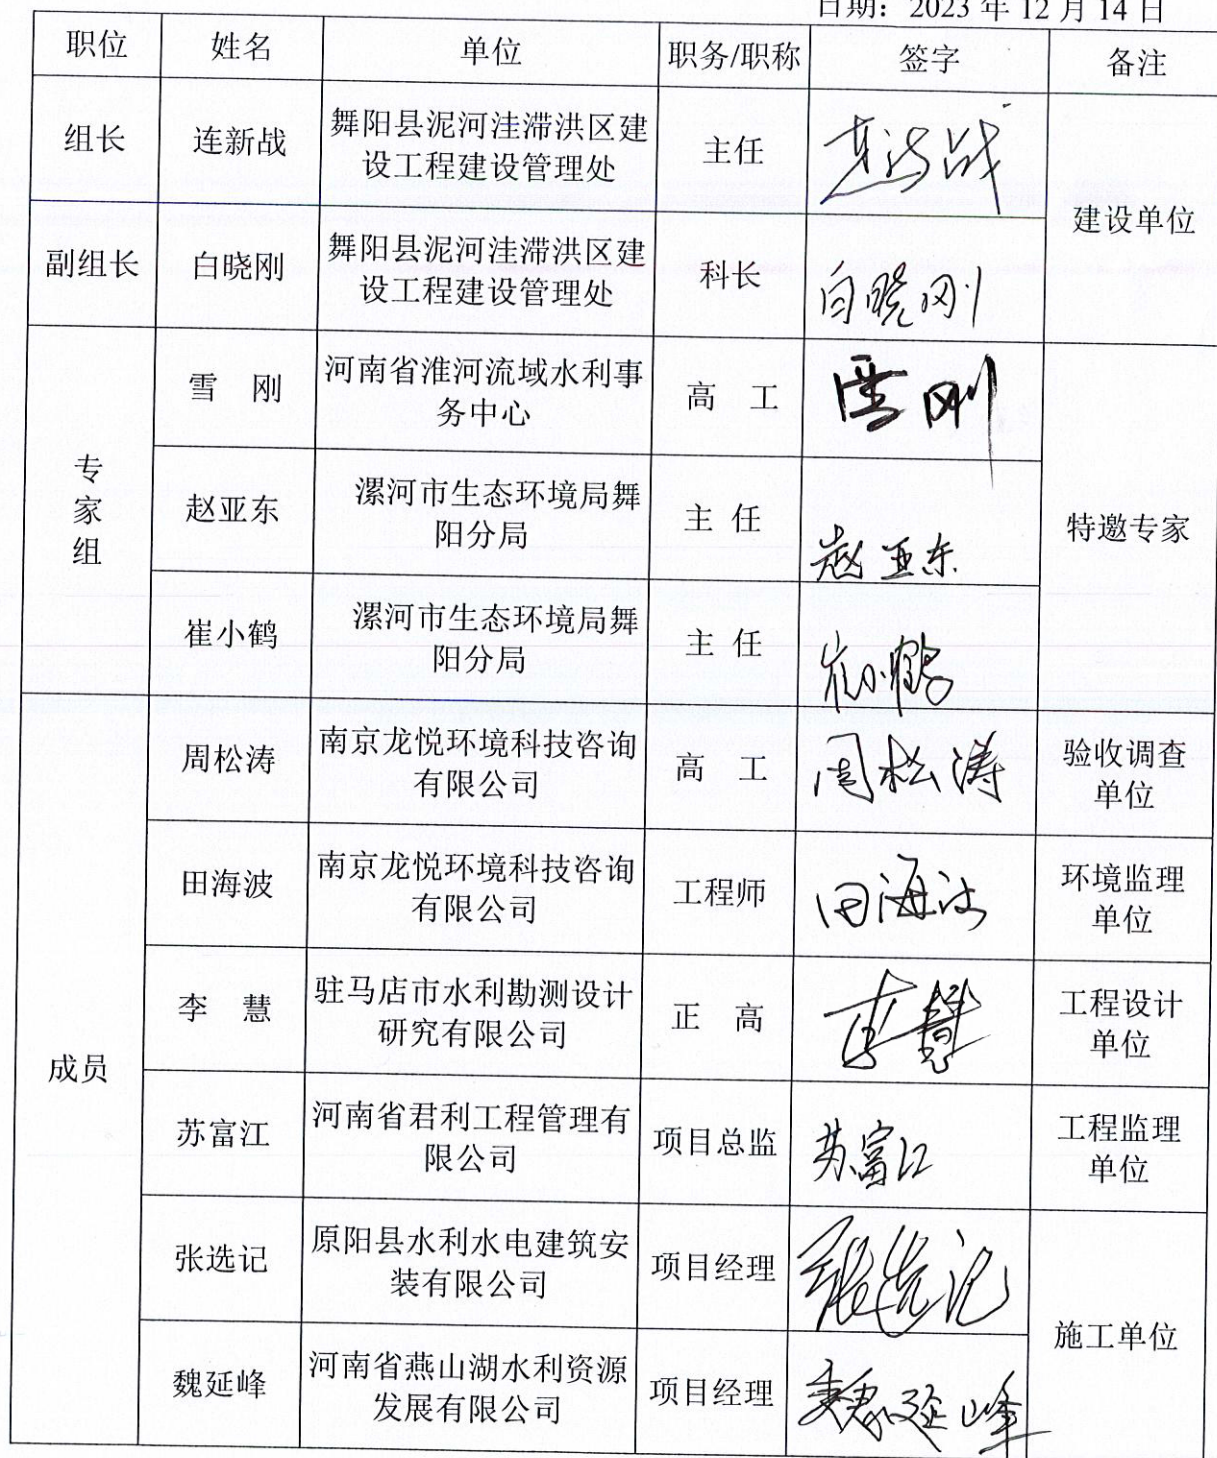 日期：2023 年 12 月 14 日
职位 姓名 单位 职务/职称 签字 备注
组长 连新战 舞阳县泥河洼滞洪区建
设工程建设管理处 主任 连新战 建设单位
副组长 白晓刚 舞阳县泥河洼滞洪区建
设工程建设管理处 科长 白晓刚
专
家
组
雪 刚 河南省淮河流域水利事
务中心 高 工 雪刚 特邀专家
赵亚东 漯河市生态环境局舞
阳分局 主 任 赵亚东
崔小鹤 漯河市生态环境局舞
阳分局 主 任 崔小鹤
成员
周松涛 南京龙悦环境科技咨询
有限公司 高 工 周松涛 验收调查
单位
田海波 南京龙悦环境科技咨询
有限公司 工程师 田海波 环境监理
单位
李 慧 驻马店市水利勘测设计
研究有限公司 正 高 李慧 工程设计
单位
苏富江 河南省君利工程管理有
限公司 项目总监 苏富江 工程监理
单位
张选记 原阳县水利水电建筑安
装有限公司 项目经理 张选记 施工单位
魏延峰 河南省燕山湖水利资源
发展有限公司 项目经理 魏延峰